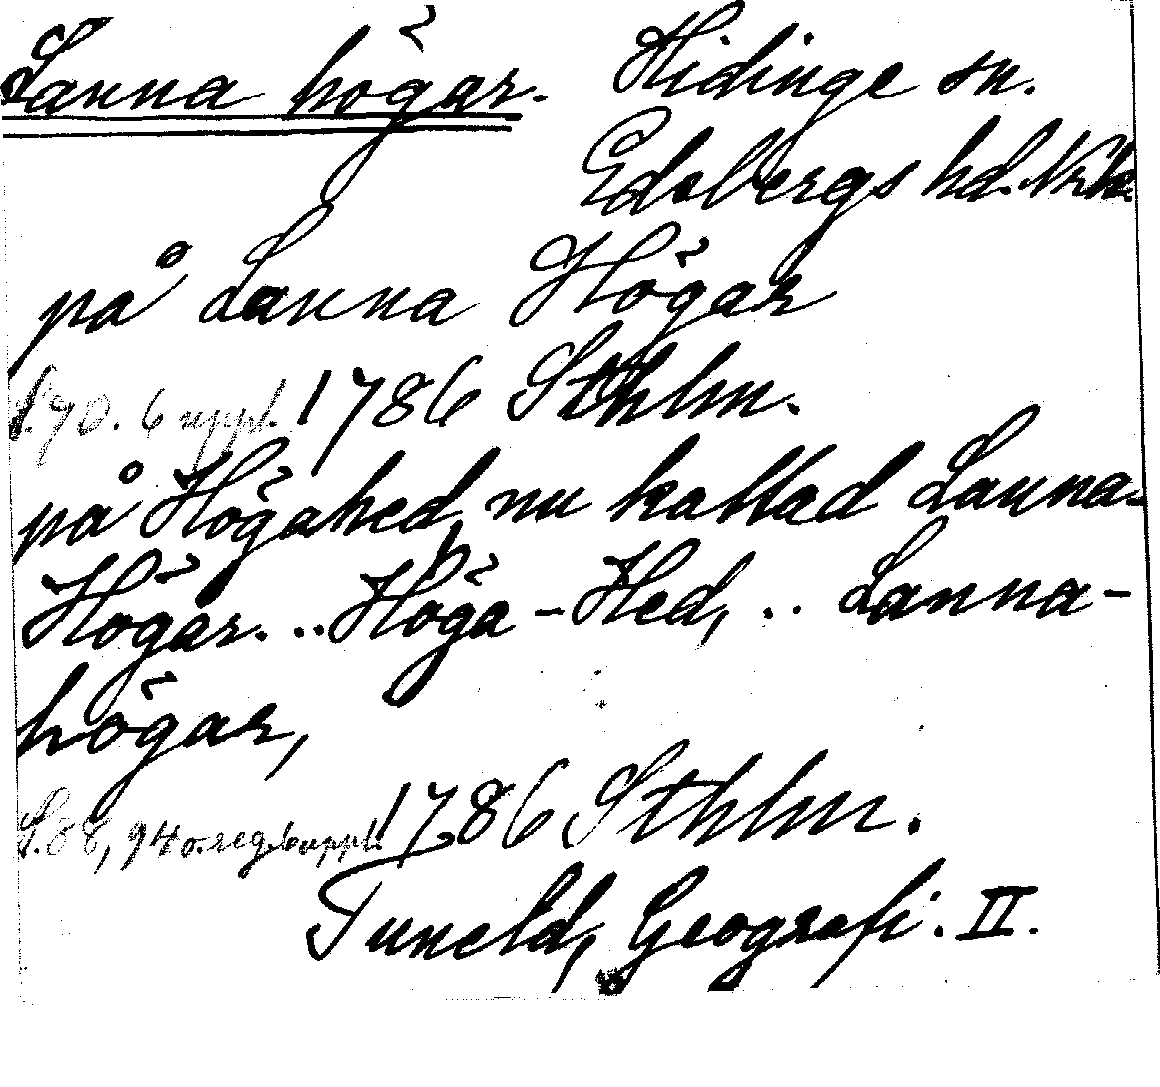 Lanna högar. Hidinge sn.
Edsbergs hd. Nrk.
på Lanna Högar
S. 70. 6 uppl. 1786 Sthlm.
på Högahed, nu kallad Lanna-
Högar. .. Höga-Hed, .. Lanna-
högar,
S. 88, 94 o. reg. 6 uppl. 1786 Sthlm.
Tuneld, Geografi. II.